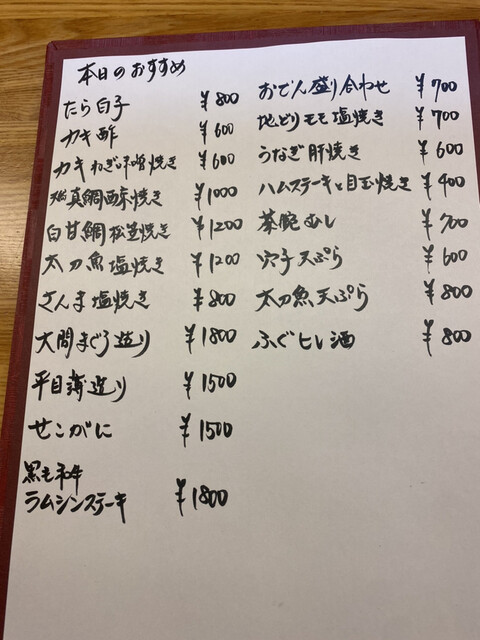 本日のおすすめ
たら白子 ¥800
カキ酢 ¥600
カキねぎ味噌焼き ¥600
真鯛西京焼き ¥1000
白甘鯛松笠焼き ¥1200
太刀魚塩焼き ¥1200
さんま塩焼き ¥800
大間まぐろ造り ¥1800
平目薄造り ¥1500
せこがに ¥1500
黒毛和牛
ラムシンステーキ ¥1800
おでん盛り合わせ ¥700
地どりモモ塩焼き ¥700
うなぎ肝焼き ¥600
ハムステーキと目玉焼き ¥400
茶碗むし ¥700
穴子天ぷら ¥600
太刀魚天ぷら ¥800
ふぐヒレ酒 ¥800